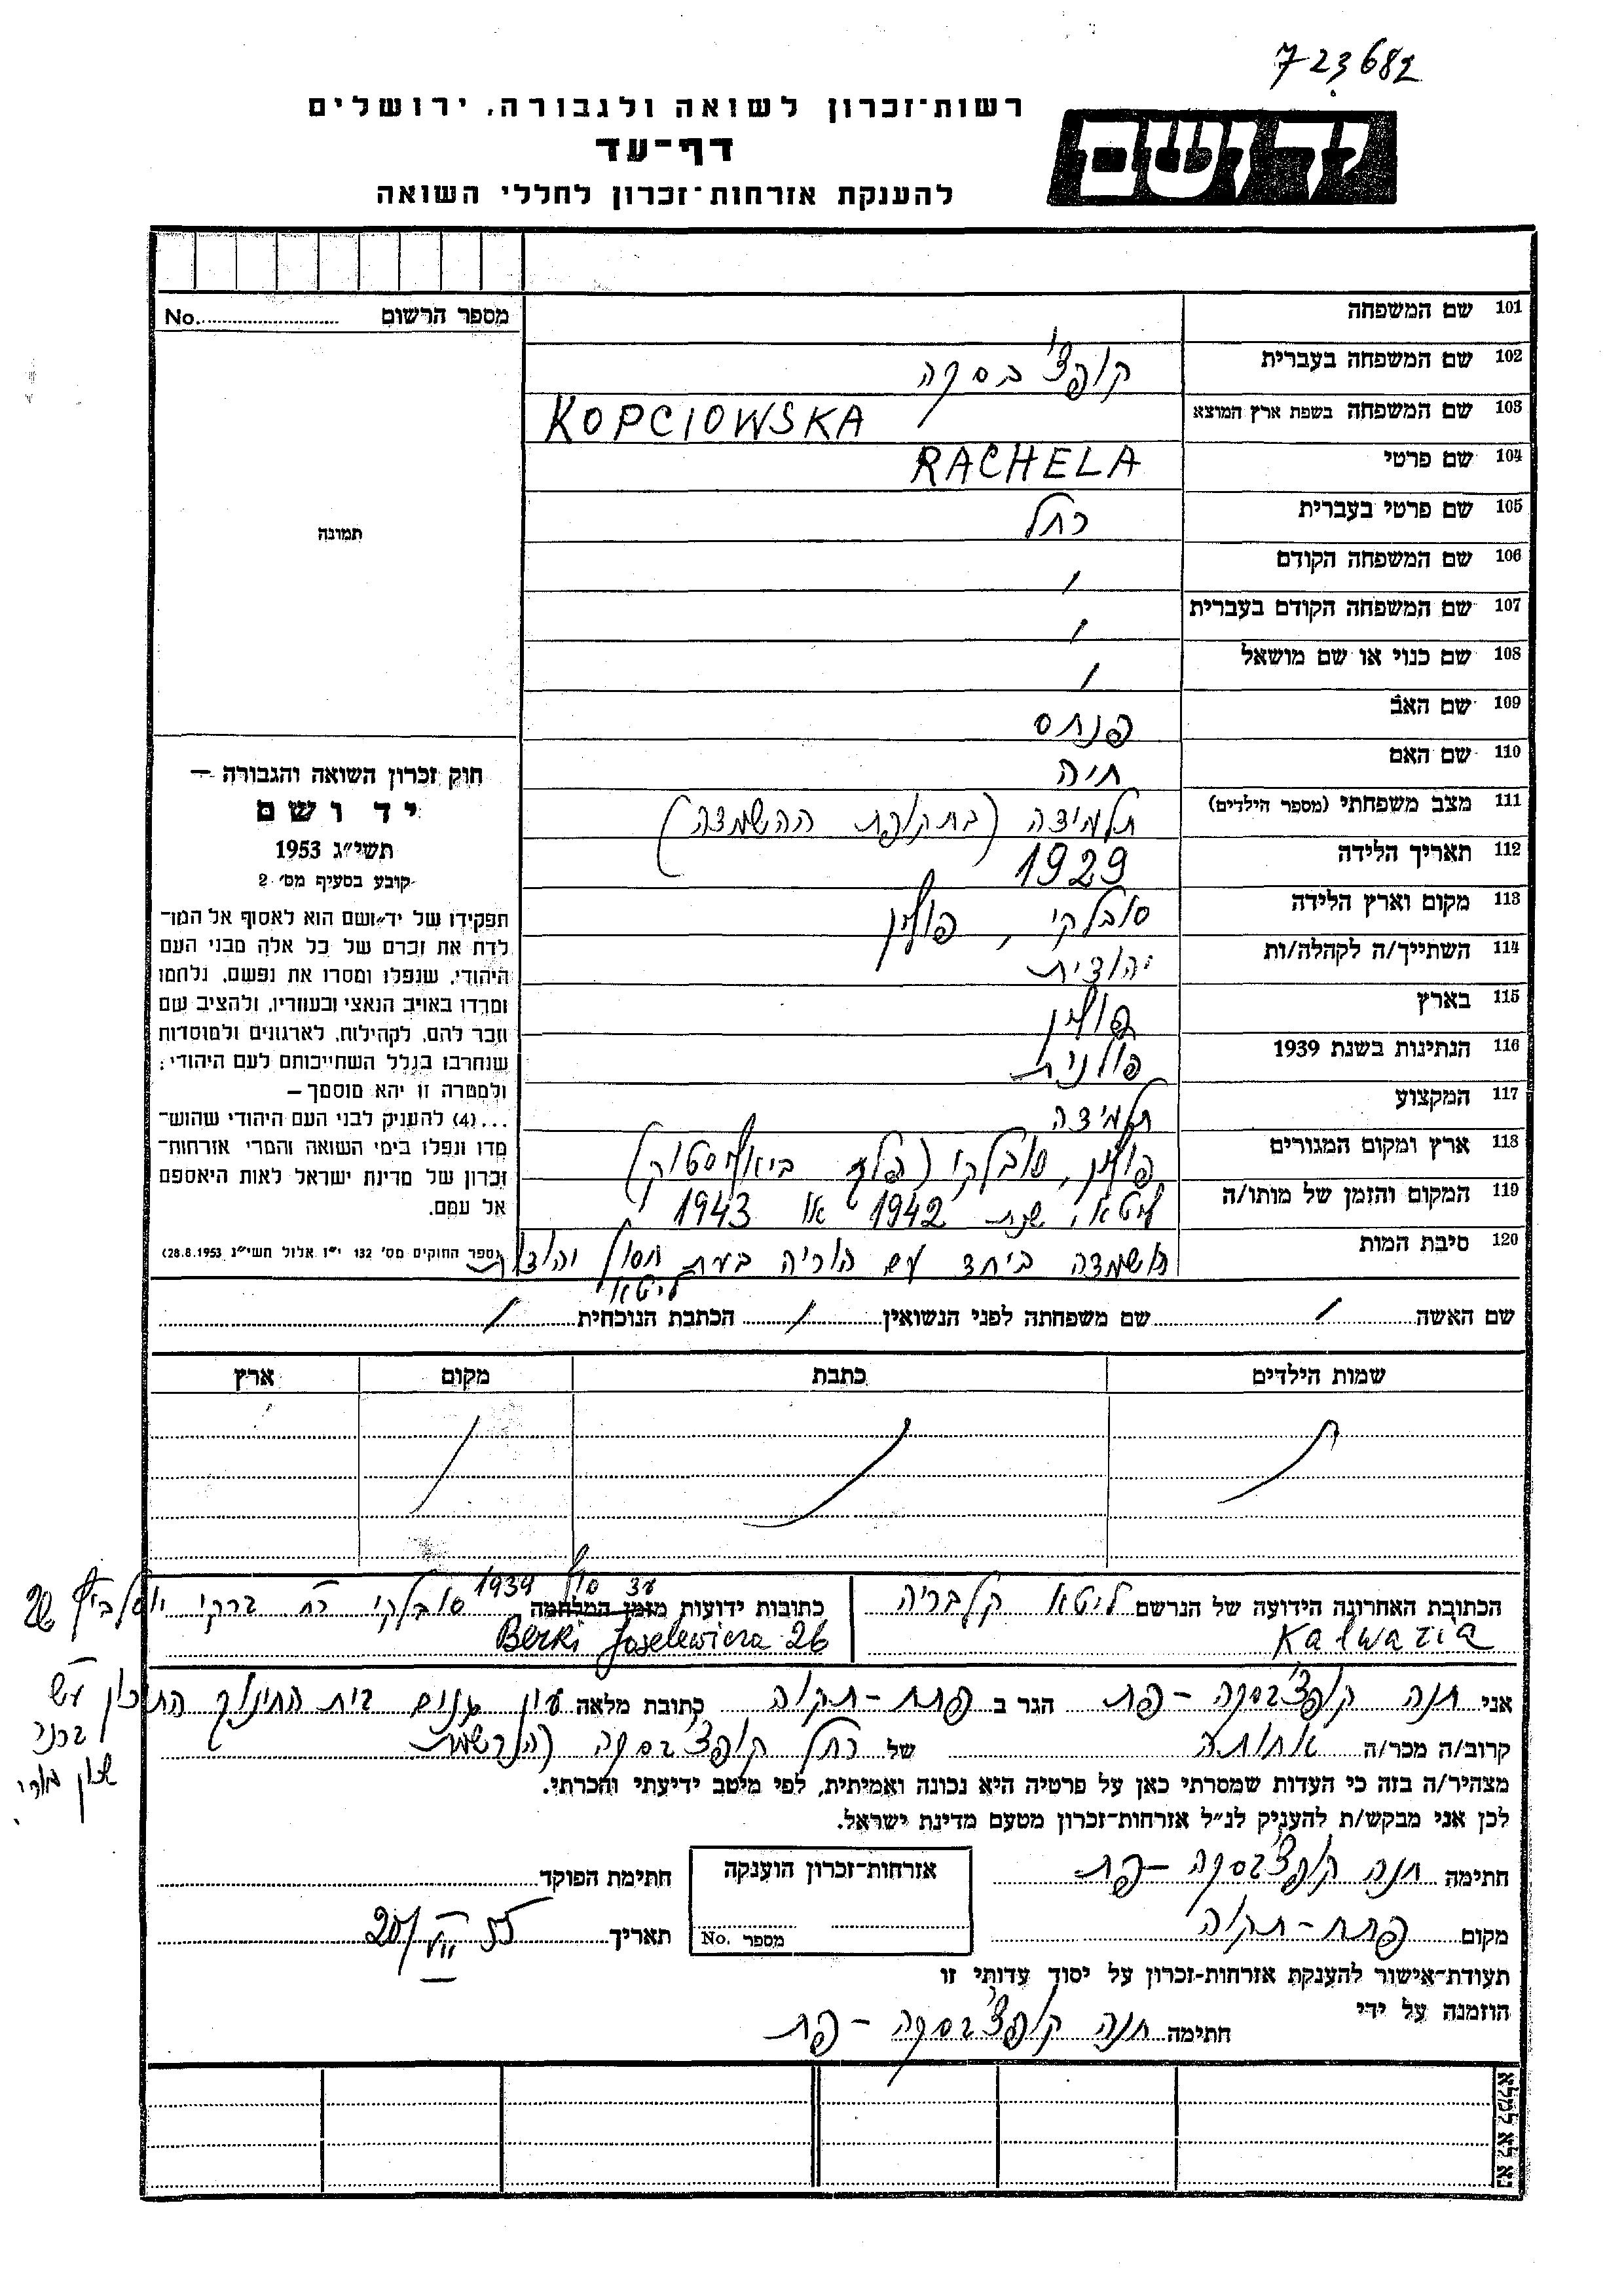 723682
רשות־זכרון לשואה ולגבורה, ירושלים
דף־עד
להענקת אזרחות־זכרון לחללי השואה
יד ושם
No. מספר הרשום
101 שם המשפחה
102 שם המשפחה בעברית קופצ'בסקה
103 שם המשפחה בשפת ארץ המוצא KOPCIOWSKA
104 שם פרטי RACHELA
105 שם פרטי בעברית רחל
106 שם המשפחה הקודם /
107 שם המשפחה הקודם בעברית /
108 שם כנוי או שם מושאל /
109 שם האב פנחס
110 שם האם חיה
111 מצב משפחתי (מספר הילדים) תלמידה (בתקופת ההשמדה)
112 תאריך הלידה 1929
113 מקום וארץ הלידה סובלקי, פולין
114 השתייך/ה לקהלה/ות יהודית
115 בארץ פולין
116 הנתינות בשנת 1939 פולנית
117 המקצוע תלמידה
118 ארץ ומקום המגורים פולין, סובלקי (פלך ביאליסטוק)
119 המקום והזמן של מותו/ה ליטא, שנת 1942 או 1943
120 סיבת המות הושמדה ביחד עם הוריה בעת חסול יהדות
ליטא
תמונה
חוק זכרון השואה והגבורה —
יד ושם
תשי"ג 1953
קובע בסעיף מס' 2
תפקידו של יד־ושם הוא לאסוף אל המו־
לדת את זכרם של כל אלה מבני העם
היהודי, שנפלו ומסרו את נפשם, נלחמו
ומרדו באויב הנאצי ובעוזריו, ולהציב שם
וזכר להם, לקהילות, לארגונים ולמוסדות
שנחרבו בגלל השתייכותם לעם היהודי;
ולמטרה זו יהא מוסמך —
...(4) להעניק לבני העם היהודי שהוש־
מדו ונפלו בימי השואה והמרי אזרחות־
זכרון של מדינת ישראל לאות היאספם
אל עמם.
(ספר החוקים מס' 132 י"ז אלול תשי"ג 28.8.1953)
שם האשה / שם משפחתה לפני הנשואין / הכתבת הנוכחית /
שמות הילדים כתבת מקום ארץ
עד סוף 1939
הכתובת האחרונה הידועה של הנרשם ליטא קלבריה
Kalwaria
כתובות ידועות מזמן המלחמה סובלקי רח' ברקי יוסלביץ 26
Berki Joselewicza 26
אני חנה קופצ'בסקה־פת הגר ב פתח־תקוה כתובת מלאה עין גנים בית החינוך התיכון ע"ש
קרוב/ה מכר/ה אחותה של רחל קופצ'בסקה (הנרשמת
מצהיר/ה בזה כי העדות שמסרתי כאן על פרטיה היא נכונה ואמיתית, לפי מיטב ידיעתי והכרתי.
לכן אני מבקש/ת להעניק לנ"ל אזרחות־זכרון מטעם מדינת ישראל.
חתימה חנה קופצ'בסקה־פת
אזרחות־זכרון הוענקה
No. מספר
חתימת הפוקד
מקום פתח־תקוה
תאריך 20/VII 55
תעודת־אישור להענקת אזרחות־זכרון על יסוד עדותי זו
הוזמנה על ידי
חתימה חנה קופצ'בסקה־פת
נא לא למלא